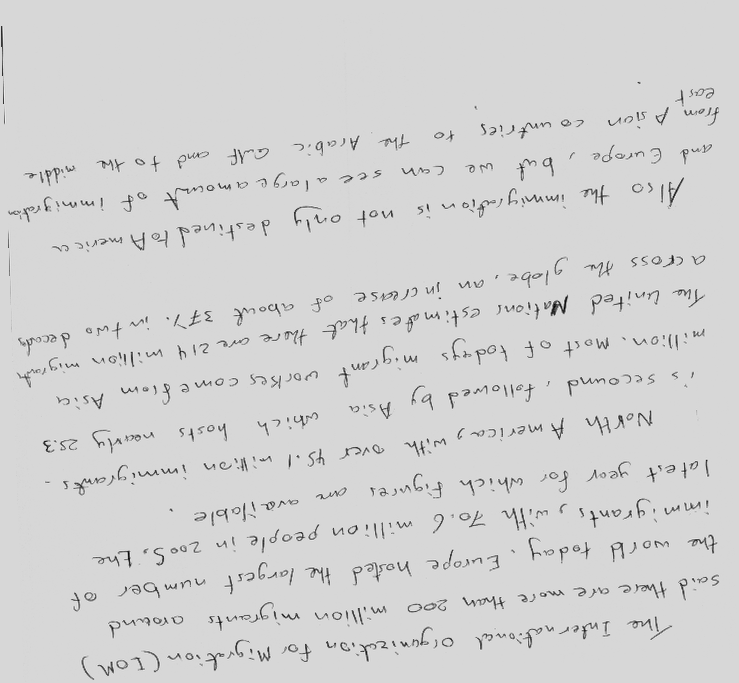 The International Organization for Migration (IOM)
said there are more than 200 million migrants around
the world today. Europe hosted the largest number of
immigrants, with 70.6 million people in 2005, the
latest year for which figures are available.
North America, with over 45.1 million immigrants.
is secound, followed by Asia which hosts nearly 25.3
million. Most of todays migrant workes come from Asia
The United Nations estimates that there are 214 million migrants
across the globe, an increase of about 37% in two decads
Also the immigration is not only destined to America
and Europe, but we can see a large amount of immigration
from Asian countries to the Arabic Gulf and to the middle
east